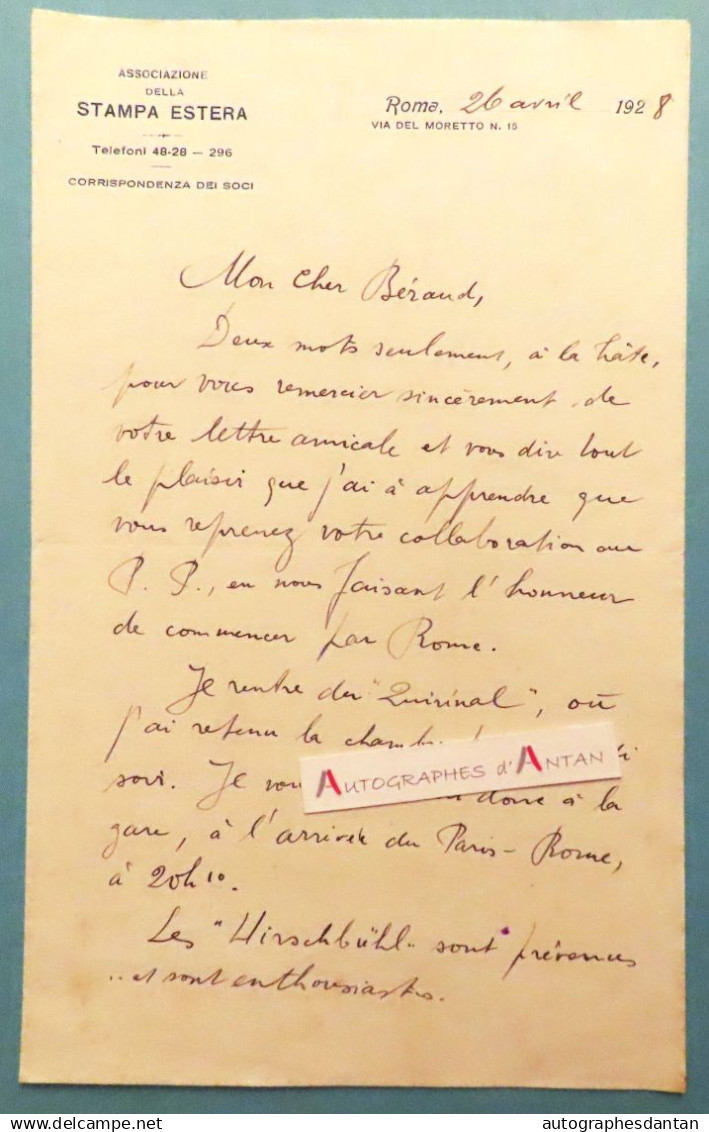 ASSOCIAZIONE
DELLA
STAMPA ESTERA
Telefoni 48-28 — 296
CORRISPONDENZA DEI SOCI
Roma, 26 avril 1928
VIA DEL MORETTO N. 15
Mon cher Béraud,
Deux mots seulement, à la hâte,
pour vous remercier sincèrement de
votre lettre amicale et vous dire tout
le plaisir que j'ai à apprendre que
vous reprenez votre collaboration au
P. P., en nous faisant l'honneur
de commencer par Rome.
Je rentre du "Quirinal", où
j'ai retenu la
soir. Je donc à la
gare, à l'arrivée du Paris-Rome,
à 20h10.
Les "Hirschbühl" sont prévenus
..et sont enthousiastes.
AUTOGRAPHES d'ANTAN
delcampe.net
autographesdantan